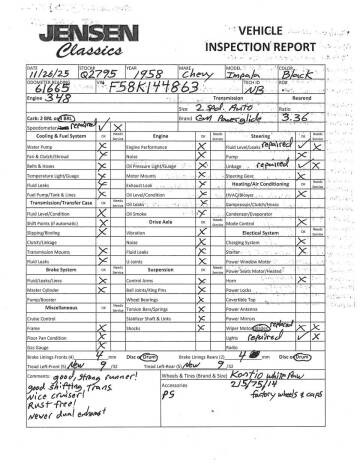 JENSEN
Classics
VEHICLE
INSPECTION REPORT
DATE 11/26/25 STOCK# Q2795 YEAR 1958 MAKE Chevy MODEL Impala COLOR Black
ODOMETER READING 61665 VIN F58K144863 TECH ID NB RO#
Engine 348 Transmission Rearend
Size 2 Spd. Auto Ratio
Carb: 2 BRL or 4 BRL Brand GM Powerglide 3.36
Speedometer repaired X
Cooling & Fuel System OK Needs Service Engine OK Needs Service Steering OK Needs Service
Water Pump X Engine Performance X Fluid Level/Leaks repaired
Fan & Clutch/Shroud X Noise X Pump X
Belts & Hoses X Oil Pressure Light/Guage X Linkage repaired
Temperature Light/Guage X Motor Mounts X Steering Gear X
Fluid Leaks X Exhaust Leak X Heating/Air Conditioning OK Needs Service
Fuel Pump/Tank & Lines X Oil Level/Condition X HVAC/Blower X
Transmission/Transfer Case OK Needs Service Oil Leaks X Compressor/Clutch/Hoses
Fluid Level/Condition X Oil Smoke X Condenser/Evaporator
Shift Points (if automatic) X Drive Axle OK Needs Service Mode Control X
Slipping/Binding X Vibration X Electical System OK Needs Service
Clutch/Linkage Noise X Charging System X
Transmission Mounts X Fluid Level X Starter X
Fluid Leaks X U-Joints X Power Window Motor
Brake System OK Needs Service Suspension OK Needs Service Power Seats Motor/Heated
Fluid/Leaks/Lines X Control Arms X Horn X
Master Cylinder X Ball Joints/King Pins X Power Locks
Pump/Booster X Wheel Bearings X Covertible Top
Miscellaneous OK Needs Service Torsion Bars/Springs X Power Antenna
Cruise Control Stabilizer Shaft & Links X Power Mirrors
Frame X Shocks X Wiper Motor replaced X
Floor Pan Condition X Lights repaired X
Gas Gauge X Radio
Brake Linings Fronts (4) 4 mm Disc or Drum Brake Linings Rears (2) 4 mm Disc or Drum
Tread Left-Front (5) New 9 /32 Tread Left-Rear (5) New 9 /32
Comments: good, strong runner! Wheels & Tires (Brand & Size) Kontio white Paw
good shifting Trans. 215/75/14
Nice cruiser! Accessories factory wheels & caps
Rust free! PS
Newer dual exhaust